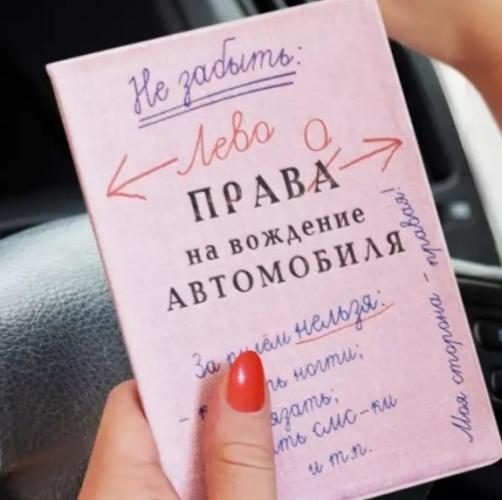 Не забыть:
Лево О
ПРАВА
на вождение
АВТОМОБИЛЯ
За нельзя:
ногти;
смс-ки
и т.п.
Моя сторона - правая!